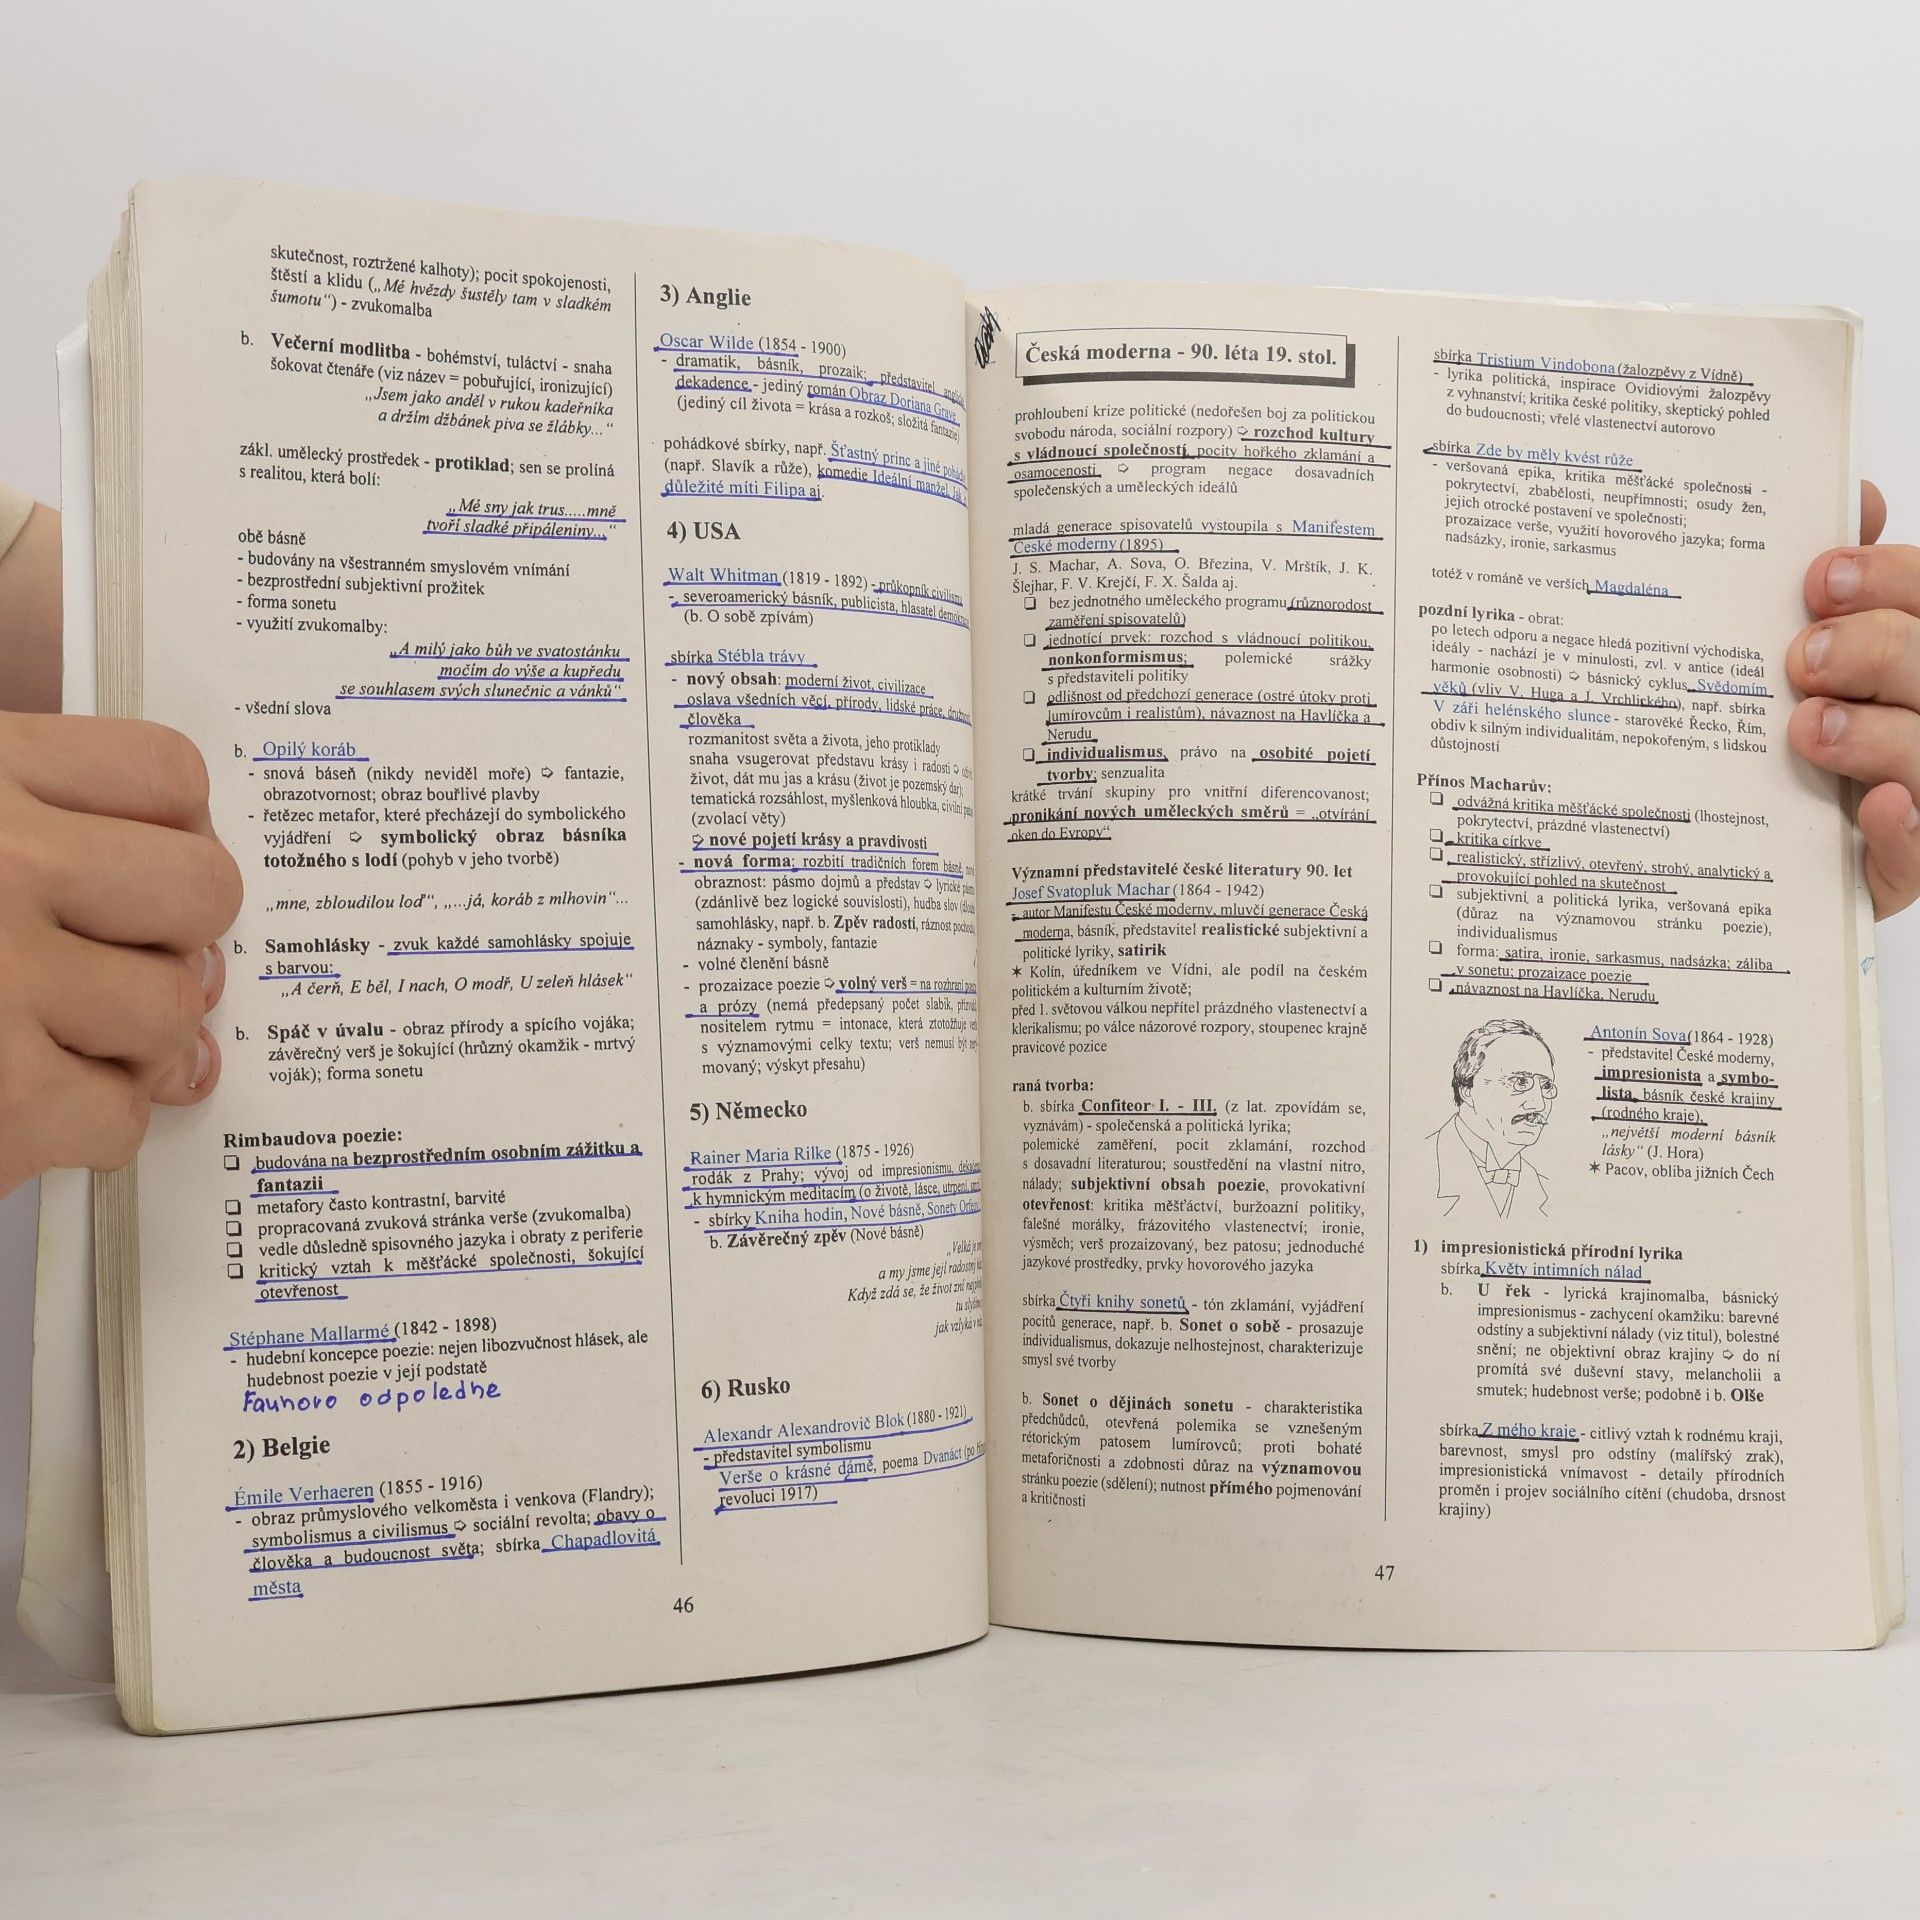 skutečnost, roztržené kalhoty); pocit spokojenosti,
štěstí a klidu („Mé hvězdy šustěly tam v sladkém
šumotu“) - zvukomalba
b. Večerní modlitba - bohémství, tuláctví - snaha
šokovat čtenáře (viz název = pobuřující, ironizující)
„Jsem jako anděl v rukou kadeřníka
a držím džbánek piva se žlábky...“
zákl. umělecký prostředek - protiklad; sen se prolíná
s realitou, která bolí:
„Mé sny jak trus.....mně
tvoří sladké připáleniny...“
obě básně
- budovány na všestranném smyslovém vnímání
- bezprostřední subjektivní prožitek
- forma sonetu
- využití zvukomalby:
„A milý jako bůh ve svatostánku
močím do výše a kupředu
se souhlasem svých slunečnic a vánků“
- všední slova
b. Opilý koráb
- snová báseň (nikdy neviděl moře) ➪ fantazie,
obrazotvornost; obraz bouřlivé plavby
- řetězec metafor, které přecházejí do symbolického
vyjádření ➪ symbolický obraz básníka
totožného s lodí (pohyb v jeho tvorbě)
„mne, zbloudilou loď“, „...já, koráb z mlhovin“...
b. Samohlásky - zvuk každé samohlásky spojuje
s barvou:
„A čerň, E běl, I nach, O modř, U zeleň hlásek“
b. Spáč v úvalu - obraz přírody a spícího vojáka;
závěrečný verš je šokující (hrůzný okamžik - mrtvý
voják); forma sonetu
Rimbaudova poezie:
❏ budována na bezprostředním osobním zážitku a
fantazii
❏ metafory často kontrastní, barvité
❏ propracovaná zvuková stránka verše (zvukomalba)
❏ vedle důsledně spisovného jazyka i obraty z periferie
❏ kritický vztah k měšťácké společnosti, šokující
otevřenost
Stéphane Mallarmé (1842 - 1898)
- hudební koncepce poezie: nejen libozvučnost hlásek, ale
hudebnost poezie v její podstatě
Faunovo odpoledne
2) Belgie
Émile Verhaeren (1855 - 1916)
- obraz průmyslového velkoměsta i venkova (Flandry);
symbolismus a civilismus ➪ sociální revolta; obavy o
člověka a budoucnost světa; sbírka Chapadlovitá
města
3) Anglie
Oscar Wilde (1854 - 1900)
- dramatik, básník, prozaik; představitel
dekadence - jediný román Obraz Doriana Graye
(jediný cíl života = krása a rozkoš; složitá fantazie)
pohádkové sbírky, např. Šťastný princ a jiné
(např. Slavík a růže), komedie Ideální manžel, Jak
důležité míti Filipa aj.
4) USA
Walt Whitman (1819 - 1892) - průkopník civilismu
- severoamerický básník, publicista, hlasatel
(b. O sobě zpívám)
sbírka Stébla trávy
- nový obsah: moderní život, civilizace
oslava všedních věcí, přírody, lidské práce,
člověka
rozmanitost světa a života, jeho protiklady
snaha vsugerovat představu krásy i radosti ➪
život, dát mu jas a krásu (život je pozemský dar);
tematická rozsáhlost, myšlenková hloubka,
(zvolací věty)
➪ nové pojetí krásy a pravdivosti
- nová forma: rozbití tradičních forem básně,
obraznost: pásmo dojmů a představ ➪ lyrické
(zdánlivě bez logické souvislosti), hudba slov
samohlásky, např. b. Zpěv radostí, ráznost
náznaky - symboly, fantazie
- volné členění básně
- prozaizace poezie ➪ volný verš = na rozhraní
a prózy (nemá předepsaný počet slabik,
nositelem rytmu = intonace, která ztotožňuje
s významovými celky textu; verš nemusí být
movaný; výskyt přesahu)
5) Německo
Rainer Maria Rilke (1875 - 1926)
rodák z Prahy; vývoj od impresionismu,
k hymnickým meditacím (o životě, lásce, utrpení,
- sbírky Kniha hodin, Nové básně, Sonety
b. Závěrečný zpěv (Nové básně)
„Velká je
a my jsme její radostný
Když zdá se, že život zní
tu
jak vzlyká v
6) Rusko
Alexandr Alexandrovič Blok (1880 - 1921)
- představitel symbolismu
Verše o krásné dámě, poema Dvanáct (po
revoluci 1917)
46
Česká moderna - 90. léta 19. stol.
prohloubení krize politické (nedořešen boj za politickou
svobodu národa, sociální rozpory) ➪ rozchod kultury
s vládnoucí společností, pocity hořkého zklamání a
osamocenosti ➪ program negace dosavadních
společenských a uměleckých ideálů
mladá generace spisovatelů vystoupila s Manifestem
České moderny (1895)
J. S. Machar, A. Sova, O. Březina, V. Mrštík, J. K.
Šlejhar, F. V. Krejčí, F. X. Šalda aj.
❏ bez jednotného uměleckého programu (různorodost
zaměření spisovatelů)
❏ jednotící prvek: rozchod s vládnoucí politikou,
nonkonformismus; polemické srážky
s představiteli politiky
❏ odlišnost od předchozí generace (ostré útoky proti
lumírovcům i realistům), návaznost na Havlíčka a
Nerudu
❏ individualismus, právo na osobité pojetí
tvorby; senzualita
krátké trvání skupiny pro vnitřní diferencovanost;
pronikání nových uměleckých směrů = „otvírání
oken do Evropy“
Významní představitelé české literatury 90. let
Josef Svatopluk Machar (1864 - 1942)
- autor Manifestu České moderny, mluvčí generace Česká
moderna, básník, představitel realistické subjektivní a
politické lyriky, satirik
✶ Kolín, úředníkem ve Vídni, ale podíl na českém
politickém a kulturním životě;
před 1. světovou válkou nepřítel prázdného vlastenectví a
klerikalismu; po válce názorové rozpory, stoupenec krajně
pravicové pozice
raná tvorba:
b. sbírka Confiteor I. - III. (z lat. zpovídám se,
vyznávám) - společenská a politická lyrika;
polemické zaměření, pocit zklamání, rozchod
s dosavadní literaturou; soustředění na vlastní nitro,
nálady; subjektivní obsah poezie, provokativní
otevřenost: kritika měšťáctví, buržoazní politiky,
falešné morálky, frázovitého vlastenectví; ironie,
výsměch; verš prozaizovaný, bez patosu; jednoduché
jazykové prostředky, prvky hovorového jazyka
sbírka Čtyři knihy sonetů - tón zklamání, vyjádření
pocitů generace, např. b. Sonet o sobě - prosazuje
individualismus, dokazuje nelhostejnost, charakterizuje
smysl své tvorby
b. Sonet o dějinách sonetu - charakteristika
předchůdců, otevřená polemika se vznešeným
rétorickým patosem lumírovců; proti bohaté
metaforičnosti a zdobnosti důraz na významovou
stránku poezie (sdělení); nutnost přímého pojmenování
a kritičnosti
sbírka Tristium Vindobona (žalozpěvy z Vídně)
- lyrika politická, inspirace Ovidiovými žalozpěvy
z vyhnanství; kritika české politiky, skeptický pohled
do budoucnosti; vřelé vlastenectví autorovo
sbírka Zde by měly kvést růže
- veršovaná epika, kritika měšťácké společnosti -
pokrytectví, zbabělosti, neupřímnosti; osudy žen,
jejich otrocké postavení ve společnosti;
prozaizace verše, využití hovorového jazyka; forma
nadsázky, ironie, sarkasmus
totéž v románě ve verších Magdaléna
pozdní lyrika - obrat:
po letech odporu a negace hledá pozitivní východiska,
ideály - nachází je v minulosti, zvl. v antice (ideál
harmonie osobnosti) ➪ básnický cyklus Svědomím
věků (vliv V. Huga a J. Vrchlického), např. sbírka
V záři helénského slunce - starověké Řecko, Řím,
obdiv k silným individualitám, nepokořeným, s lidskou
důstojností
Přínos Macharův:
❏ odvážná kritika měšťácké společnosti (lhostejnost,
pokrytectví, prázdné vlastenectví)
❏ kritika církve
❏ realistický, střízlivý, otevřený, strohý, analytický a
provokující pohled na skutečnost
❏ subjektivní a politická lyrika, veršovaná epika
(důraz na významovou stránku poezie),
individualismus
❏ forma: satira, ironie, sarkasmus, nadsázka; záliba
v sonetu; prozaizace poezie
❏ návaznost na Havlíčka, Nerudu
Antonín Sova (1864 - 1928)
- představitel České moderny,
impresionista a symbo-
lista, básník české krajiny
(rodného kraje),
„největší moderní básník
lásky“ (J. Hora)
✶ Pacov, obliba jižních Čech
1) impresionistická přírodní lyrika
sbírka Květy intimních nálad
b. U řek - lyrická krajinomalba, básnický
impresionismus - zachycení okamžiku: barevné
odstíny a subjektivní nálady (viz titul), bolestné
snění; ne objektivní obraz krajiny ➪ do ní
promítá své duševní stavy, melancholii a
smutek; hudebnost verše; podobně i b. Olše
sbírka Z mého kraje - citlivý vztah k rodnému kraji,
barevnost, smysl pro odstíny (malířský zrak),
impresionistická vnímavost - detaily přírodních
proměn i projev sociálního cítění (chudoba, drsnost
krajiny)
47